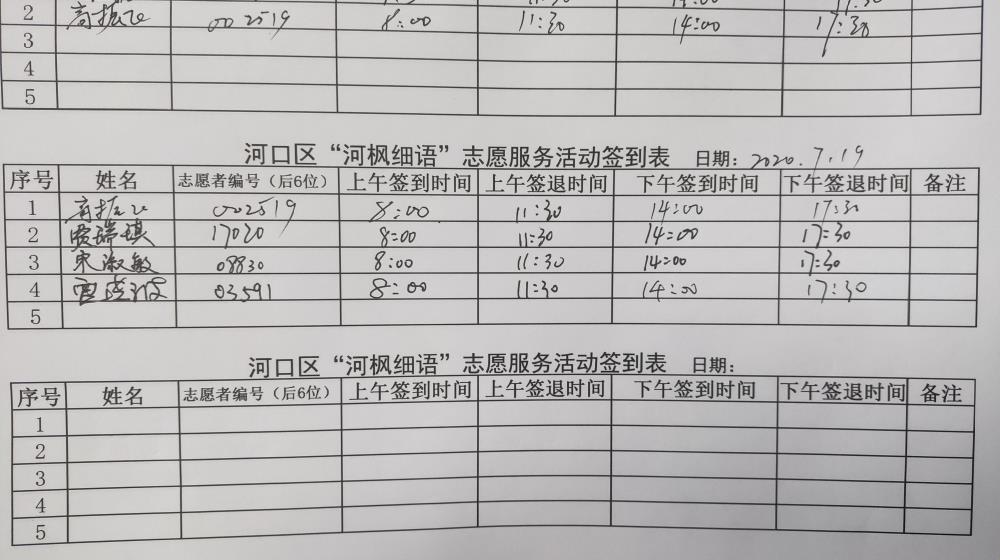 2 高振飞 002519 8:00 11:30 14:00 17:30
3
4
5
河口区“河枫细语”志愿服务活动签到表 日期：2020.7.19
序号 姓名 志愿者编号（后6位） 上午签到时间 上午签退时间 下午签到时间 下午签退时间 备注
1 高振飞 002519 8:00 11:30 14:00 17:30
2 贾瑞琪 17020 8:00 11:30 14:00 17:30
3 宋淑敏 08830 8:00 11:30 14:00 17:30
4 03591 8:00 11:30 14:00 17:30
5
河口区“河枫细语”志愿服务活动签到表 日期：
序号 姓名 志愿者编号（后6位） 上午签到时间 上午签退时间 下午签到时间 下午签退时间 备注
1
2
3
4
5